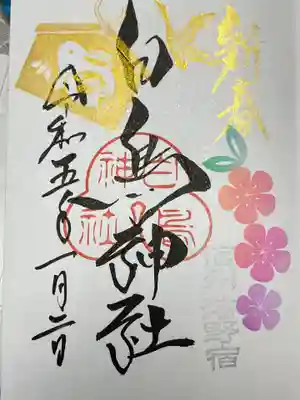 新春
白鳥神社
白鳥
神社
令和五年一月二日
信州 海野宿